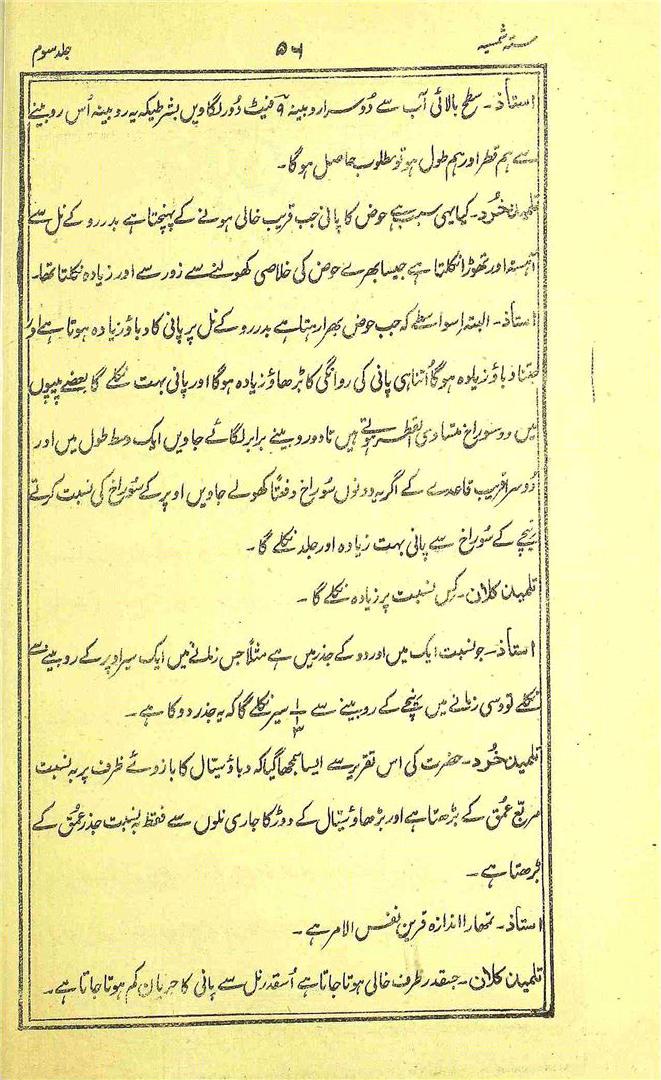 ستہ شمسیہ ۵۶ جلد سوم
استاذ۔ سطح بالائی آب سے دُوسرا روبینہ ۹ فیٹ دُور لگاویں بشرطیکہ یہ روبینہ اُس روبینے
سے ہم قطر اور ہم طول ہو تو مطلوب حاصل ہوگا۔
تلمیذ خُرد۔ کیا یہی سبب ہے حوض کا پانی جب قریب خالی ہونے کے پہنچتا ہے بدررو کے نل سے
آہستہ اور تھوڑا نکلتا ہے جیسا بھرے حوض کی خلاصی کھولنے سے زور سے اور زیادہ نکلتا تھا۔
استاذ۔ البتہ اسواسطے کہ جب حوض بھرا رہتا ہے بدررو کے نل پر پانی کا دباؤ زیادہ ہوتا ہے اور
جتنا دباؤ زیادہ ہوگا اُتنا ہی پانی کی روانگی کا بڑھاؤ زیادہ ہوگا اور پانی بہت نکلے گا بعضے پیپوں
میں دو سوراخ متساوی القطر ہوتے ہیں تا دو روبینے برابر لگائے جاویں ایک وسط طول میں اور
دُوسرا قریب قاعدے کے اگر یہ دونوں سُوراخ دفعتًا کھولے جاویں اوپر کے سُوراخ کی نسبت کرتے
نیچے کے سُوراخ سے پانی بہت زیادہ اور جلد نکلے گا۔
تلمیذ کلان۔ کِس نسبت پر زیادہ نکلے گا۔
استاذ۔ جو نسبت ایک میں اور دو کے جذر میں ہے مثلًا جس زمانے میں ایک سیر اوپر کے روبینے سے
نکلے تو وسی زمانے میں نیچے کے روبینے سے سیر نکلے گا کہ یہ جذر دو کا ہے۔
تلمیذ خُرد۔ حضرت کی اس تقریر سے ایسا سمجھا گیا کہ دباؤ سیّال کا بازوئے ظرف پر بہ نسبت
مربّع عُمق کے بڑھتا ہے اور بڑھاؤ سیّال کے دوڑ کا جاری نلوں سے فقط بہ نسبت جذر عُمق کے
بڑھتا ہے۔
استاذ۔ تمھارا اندازہ قرین نفس الامر ہے۔
تلمیذ کلان۔ جسقدر ظرف خالی ہوتا جاتا ہے اُسقدر نل سے پانی کا جریان کم ہوتا جاتا ہے۔